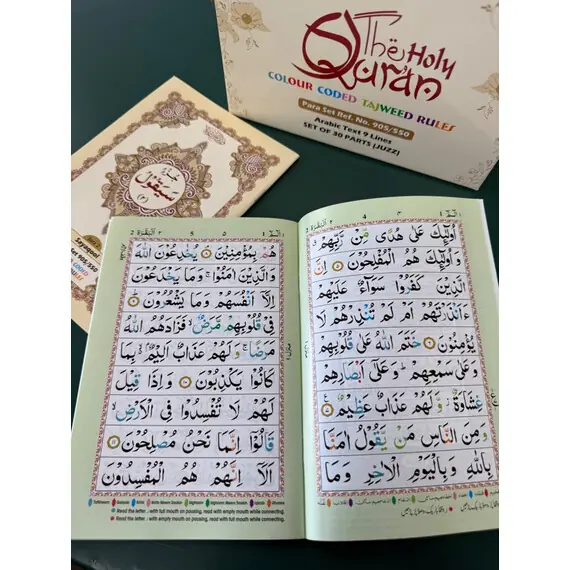 The Holy
Quran
COLOUR CODED TAJWEED RULES
Para Set Ref. No. 905/550
Arabic Text 9 Lines
SET OF 30 PARTS (JUZZ)
سَيَقُولُ
Sayaqool
اُولٰٓئِكَ عَلٰى هُدًى مِّنْ رَّبِّهِمْ
وَ اُولٰٓئِكَ هُمُ الْمُفْلِحُوْنَ ۝ اِنَّ
الَّذِيْنَ كَفَرُوْا سَوَآءٌ عَلَيْهِمْ
ءَاَنْذَرْتَهُمْ اَمْ لَمْ تُنْذِرْهُمْ لَا
يُؤْمِنُوْنَ ۝ خَتَمَ اللّٰهُ عَلٰى قُلُوْبِهِمْ
وَ عَلٰى سَمْعِهِمْ ؕ وَ عَلٰٓى اَبْصَارِهِمْ
غِشَاوَةٌ ؗ وَّ لَهُمْ عَذَابٌ عَظِيْمٌ ۝
وَ مِنَ النَّاسِ مَنْ يَّقُوْلُ اٰمَنَّا
بِاللّٰهِ وَ بِالْيَوْمِ الْاٰخِرِ وَ مَا
هُمْ بِمُؤْمِنِيْنَ ۝ يُخٰدِعُوْنَ اللّٰهَ
وَ الَّذِيْنَ اٰمَنُوْا ۚ وَ مَا يَخْدَعُوْنَ
اِلَّاۤ اَنْفُسَهُمْ وَ مَا يَشْعُرُوْنَ ۝
فِيْ قُلُوْبِهِمْ مَّرَضٌ ۙ فَزَادَهُمُ اللّٰهُ
مَرَضًا ۚ وَ لَهُمْ عَذَابٌ اَلِيْمٌۢ ۙ بِمَا
كَانُوْا يَكْذِبُوْنَ ۝ وَ اِذَا قِيْلَ
لَهُمْ لَا تُفْسِدُوْا فِي الْاَرْضِ ۙ
قَالُوْۤا اِنَّمَا نَحْنُ مُصْلِحُوْنَ ۝
اَلَاۤ اِنَّهُمْ هُمُ الْمُفْسِدُوْنَ
Read the letter . with full mouth on pausing, read with empty mouth while connecting.
Read the letter . with empty mouth on pausing, read with full mouth while connecting.